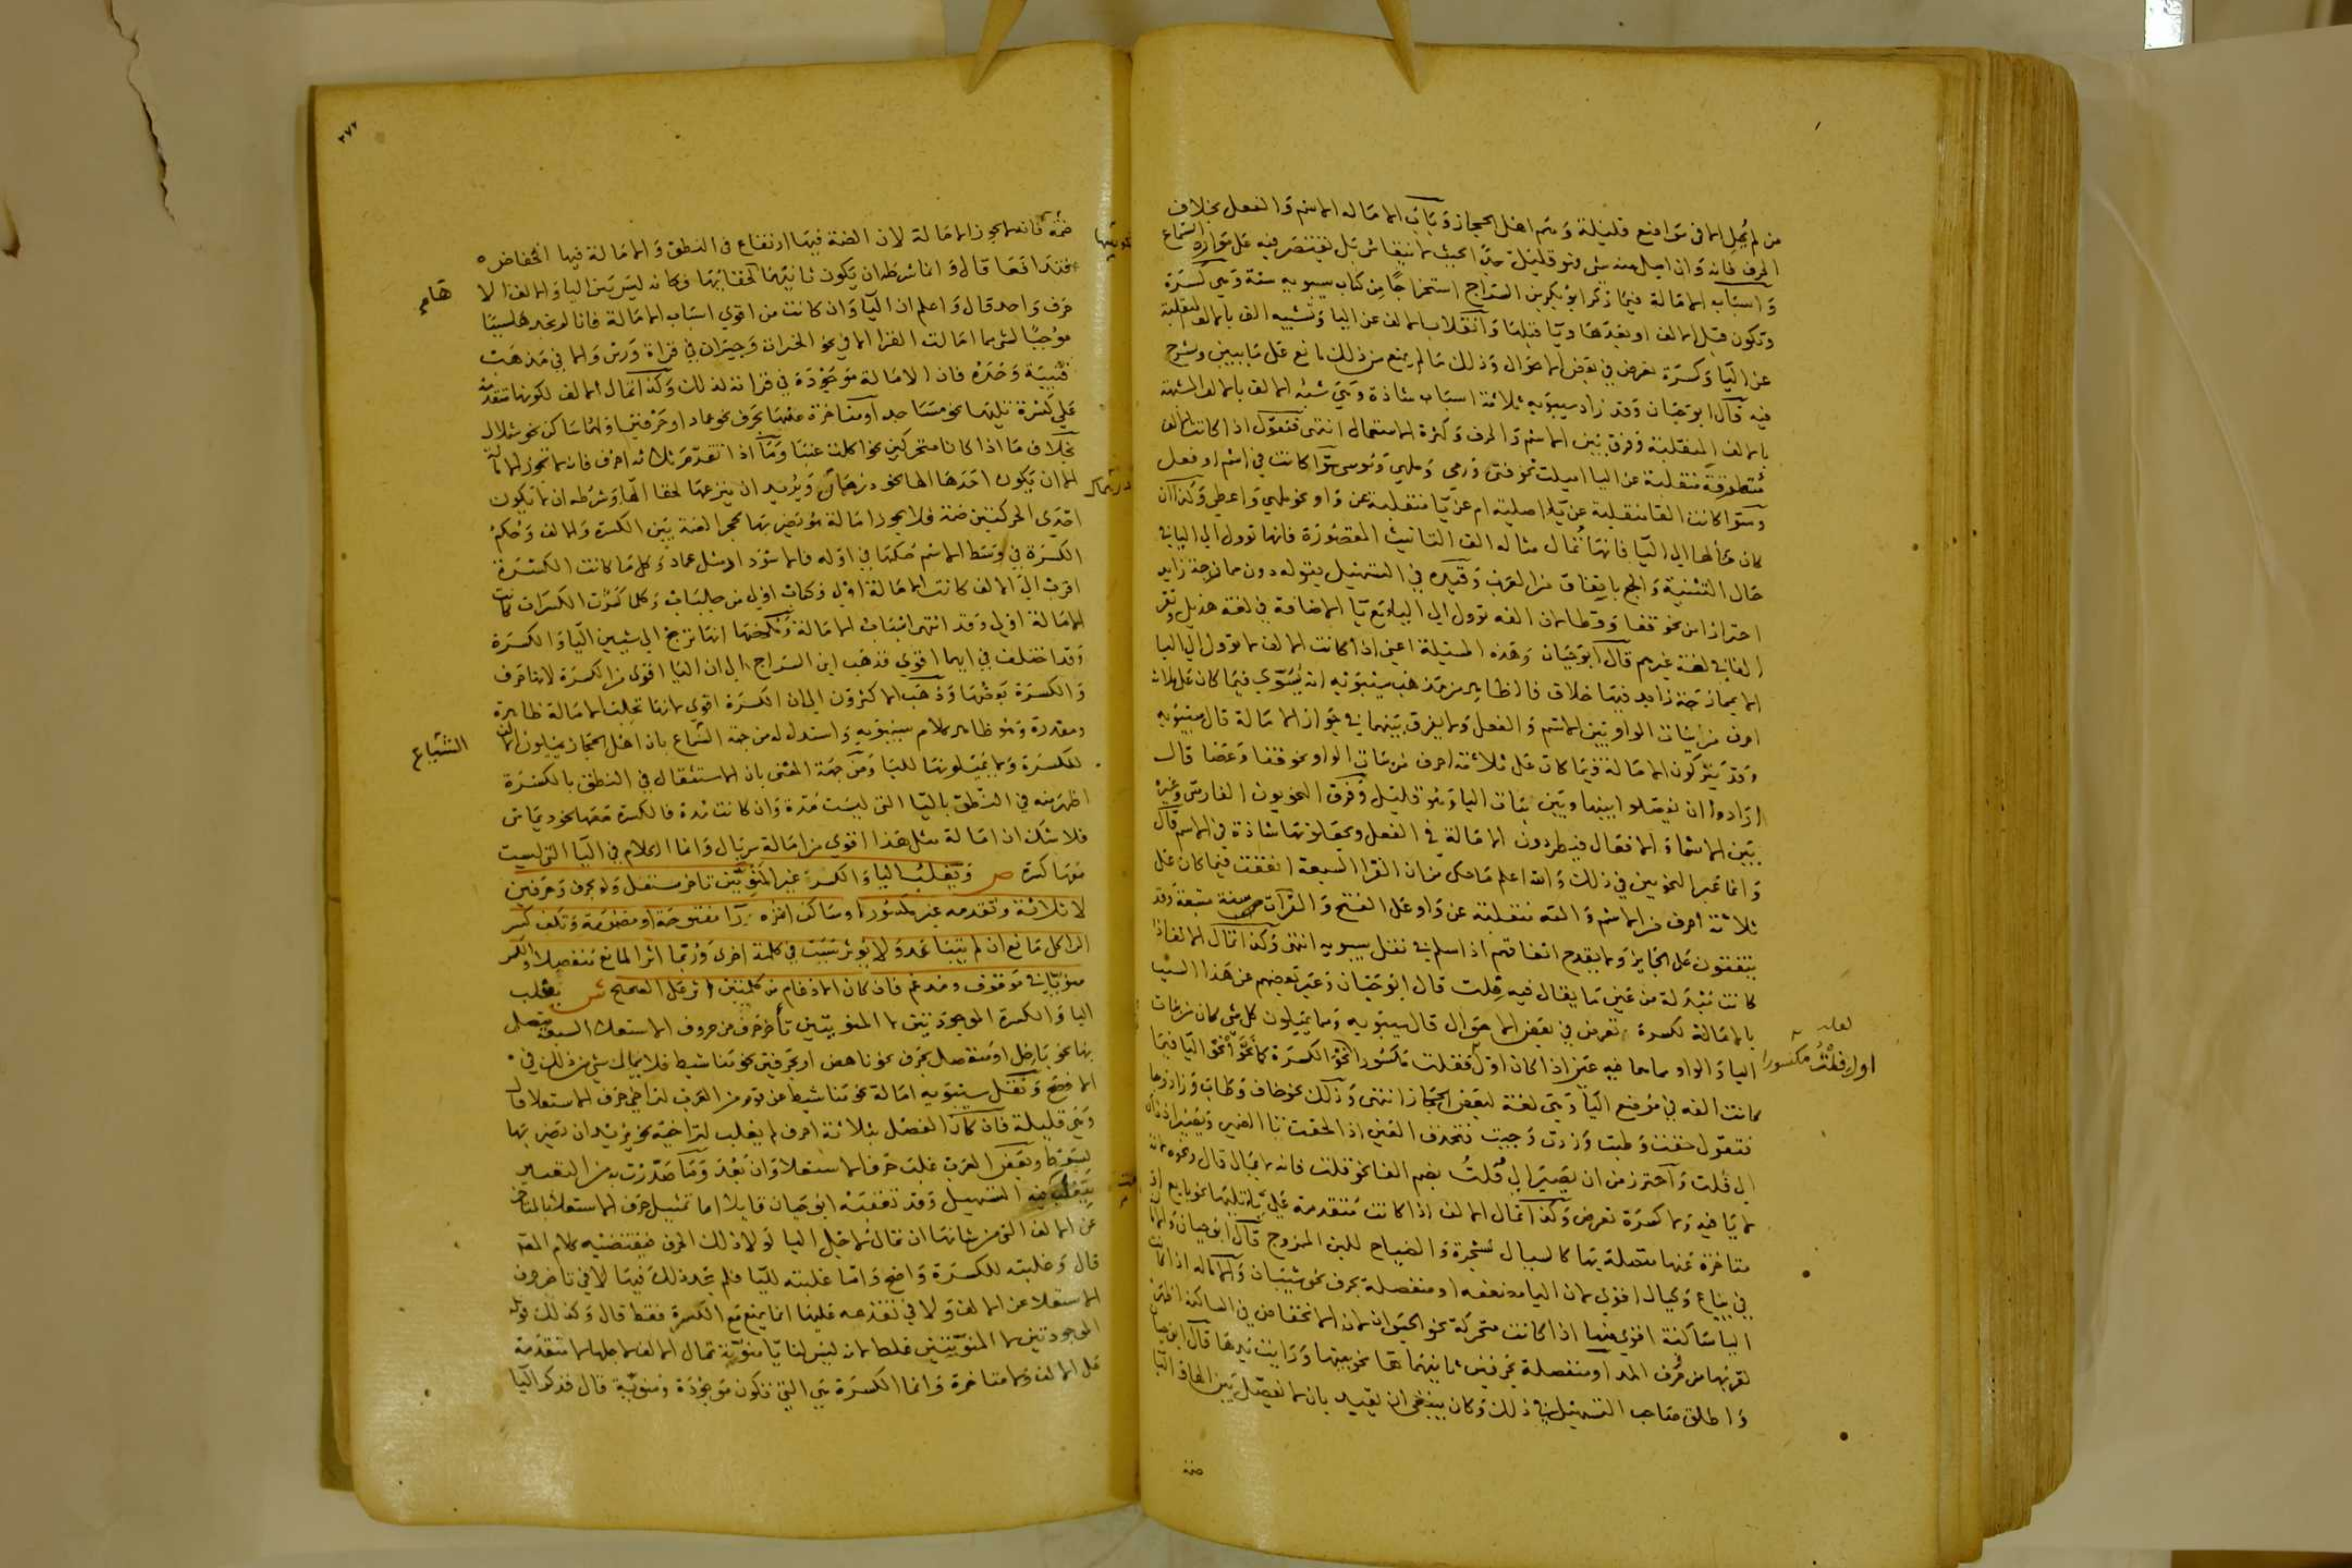 من لم يمل الا في مواضع قليلة وهم اهل الحجاز وباب الامالة الاسم والفعل بخلاف
الحرف فانه وان اميل منه شي فهو قليل جدا بحيث لا ينقاس بل يقتصر فيه على موارد السماع
واسباب الامالة فيما ذكر ابو بكر بن السراج استخراجا من كتاب سيبويه ستة وهي كسرة
وتكون قبل الالف او بعدها ويا قبلها وانقلاب الالف عن اليا وتشبيه الف بالالف المنقلبة
عن اليا وكسرة تعرض في بعض الاحوال وذلك ما لم يمنع من ذلك مانع على ما يبين ويشرح
فيه قال ابو حيان وقد زاد سيبويه ثلاثة اسباب شاذة وهي شبه الالف بالالف المشبهة
بالالف المنقلبة وفرق بين الاسم والحرف وكثرة الاستعمال انتهى فنقول اذا كانت الالف
متطرفة منقلبة عن اليا اميلت نحو فتى ورمى وملهى وموسى سوا كانت في اسم او فعل
وسوا كانت الفا منقلبة عن يا اصلية ام عن يا منقلبة عن واو نحو ملهى واعطى وكذا ان
كان مآلها الى اليا فانها تمال مثاله الف التانيث المقصورة فانها توول الى اليا في
حال التثنية والجمع باتفاق من العرب وقيده في التسهيل بقوله دون ممازجة زايد
احترازا من نحو قفا وقطا لان الفه توول الى اليا مع يا الاضافة في لغة هذيل
الفا في لغة غيرهم قال ابو حيان وهذه المسئلة اعني اذا كانت الالف لا توول الى اليا
الا بممازجة زايد فيها خلاف فالظاهر من مذهب سيبويه انه يسوي فيما كان على ثلاثة
احرف من بنات الواو بين الاسم والفعل ولا يفرق بينهما في جواز الامالة قال سيبويه
وقد يتركون الامالة فيما كان على ثلاثة احرف من بنات الواو نحو قفا وعصا قال
ارادوا ان يفصلوا بينها وبين بنات اليا وهو قليل وفرق النحويون الفارسي وغيره
بين الاسما والافعال فيطردون الامالة في الفعل ويجعلونها شاذة في الاسم قال
وانما غير النحويين في ذلك والله اعلم ما حكى من ان القرا السبعة اتفقت فيما كان على
ثلاثة احرف من الاسم والفه منقلبة عن واو على الفتح والقرآت سنة متبعة وقد
يتفقون على الجايز ولا يقدح اتفاقهم اذا سلم في نقل سيبويه انتهى وكذا تمال الالف اذا
كانت مبدلة من عين ما يقال فيه فلت قال ابو حيان وعبر بعضهم عن هذا السبب
بالامالة لكسرة تعرض في بعض الاحوال قال سيبويه ومما يميلون كل شي كان من بنات
اليا والواو مما هما فيه عين اذا كان اول فعلت مكسورا نحوا نحو الكسرة كما نحوا نحو اليا فيما
كانت الفه في موضع اليا وهي لغة لبعض الحجاز انتهى وذلك نحو خاف وطاب وزاد وجا
فتقول خفت وطبت وزدت وجيت فتحذف العين اذا لحقت تا الضمير
الى فلت واحترز من ان يصير الى فُلت بضم الفا نحو قلت فانه لا يمال قال ونحوه لانه
لا يا فيه ولا كسرة تعرض وكذا تمال الالف اذا كانت متقدمة على يا تليها نحو بايع او
متاخرة عنها متصلة بها كالسيال لشجرة والضياح للبن الممزوج قال ابو حيان
في بياع وكيال اقوى لان اليا مضعفة او منفصلة بحرف نحو شيبان والامالة اذا كانت
اليا ساكنة اقوى منها اذا كانت متحركة نحو الحيوان لان الانخفاض في الساكنة اظهر
لقربها من حرف المد او منفصلة بحرفين ثانيهما ها نحو بيتها ورايت يدها قال ابو حيان
واطلق صاحب التسهيل في ذلك وكان ينبغي ان يقيد بان لا يفصل بين الها واليا
ضمة
لعله
اول فلت مكسورا
٢٧٢
ضمة فانه لا يجوز الامالة لان الضمة فيها ارتفاع في النطق والامالة فيها انخفاض
فتدافعا قال وانما شرطه ان يكون ثانيهما لخفائها فكانه ليس بين اليا والالف الا
حرف واحد قال واعلم ان اليا وان كانت من اقوى اسباب الامالة فانا لم نجدها سببا
موجبا لشي مما امالت القرا الا في نحو الخيرات وحيران في قراة ورش والا في مذهب
قتيبة وحده فان الامالة موجودة في قراته لذلك وكذا تمال الالف لكونها متقدمة
على كسرة تليها نحو مساجد او متاخرة عنها بحرف نحو عماد او حرفين اولهما ساكن نحو شملال
بخلاف ما اذا كانا متحركين نحو اكلت عنبا وما اذا تقدم ثلاثة احرف فانه لا تجوز الامالة
الا ان يكون احدها الها نحو درهمان ويريد ان ينزعها لخفا الها وشرطه ان لا يكون
احدى الحركتين ضمة فلا يجوز امالة هو يضربها لحجز الضمة بين الكسرة والالف وحكم
الكسرة في وسط الاسم حكمها في اوله فالاسوداد مثل عماد وكل ما كانت الكسرة
اقرب الى الالف كانت الامالة اولى فكتاب اولى من جلباب وكلما كثرت الكسرات كانت
الامالة اولى وقد انتهى اسباب الامالة وملخصها انها ترجع الى شيين اليا والكسرة
وقد اختلف في ايهما اقوى فذهب ابن السراج الى ان اليا اقوى من الكسرة لانها حرف
والكسرة بعضها وذهب الاكثرون الى ان الكسرة اقوى لانها تجلب الامالة ظاهرة
ومقدرة وهو ظاهر كلام سيبويه واستدل له من جهة السماع بان اهل الحجاز يميلون الالف
للكسرة ولا يميلونها لليا ومن جهة المعنى بان الاستثقال في النطق بالكسرة
اظهر منه في النطق باليا التي ليست مدة وان كانت مدة فالكسرة معها نحو ديماس
فلا شك ان امالة مثل هذا اقوى من امالة سربال وانما الكلام في اليا التي ليست
معها كسرة ص ويغلب اليا والكسرة غير المنويتين تاخر مستعل ولو بحرف وحرفين
لا ثلاثة وتقدمه غير مكسور او ساكن اثره را مفتوحة او مضمومة وتكف كسر
الرا كل مانع ان لم يتباعد ولا يوثر سبب في كلمة اخرى وربما اثر المانع منفصلا والكسر
منويا في موقوف ومدغم فان كان الادغام من كلمتين اثر على الصحيح ش يغلب
اليا والكسرة الموجودتين لا المنويتين تأخر حرف من حروف الاستعلا السبعة متصل
بها نحو باخل او منفصل بحرف نحو ناهض او بحرفين نحو مناشيط فلا يمال شي من ذلك في
الافصح ونقل سيبويه امالة نحو مناشيط عن قوم من العرب لتراخي حرف الاستعلا قال
وهي قليلة فان كان الفصل بثلاثة احرف لم يغلب لتراخيه نحو يريد ان يضربها
بسوط وبعض العرب غلب حرف الاستعلا وان بعد وما صدرت به من التفسير
بيغلب فيه التسهيل وقد تعقبه ابو حيان قايلا اما تمثيل حرف الاستعلا بالمتاخر
عن الالف التي من شانها ان تمال لاجل اليا لولا ذلك الحرف فيقتضيه كلام المصنف
قال وغلبته للكسرة واضح واما غلبته لليا فلم نجد ذلك فيها لا في تاخر حرف
الاستعلا عن الالف ولا في تقدمه عليها انما يمنع مع الكسرة فقط قال وكذلك قوله
الموجودتين لا المنويتين غلط لانه ليس لنا يا منوية تمال الالف لاجلها لا متقدمة
على الالف ولا متاخرة وانما الكسرة هي التي تكون موجودة ومنوية قال فذكر اليا
السماع